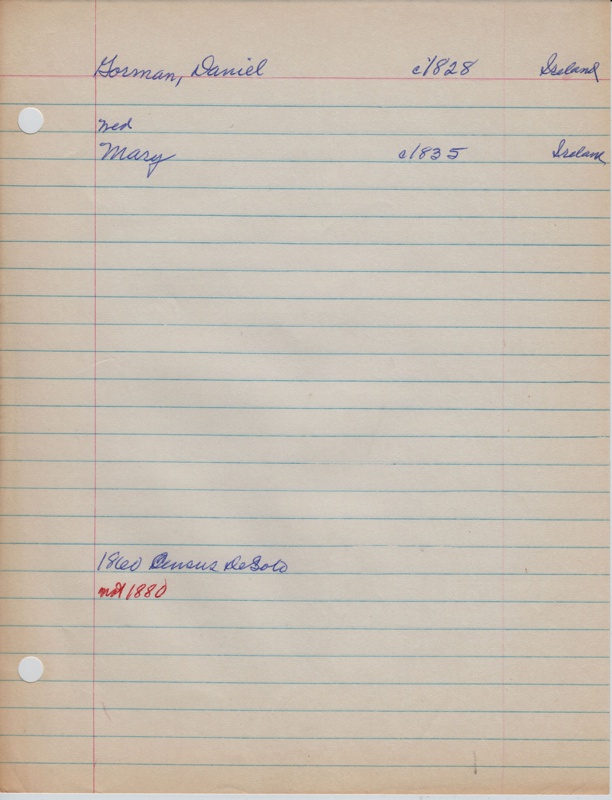 Gorman, Daniel c1828 Ireland
med
Mary c1835 Ireland
1860 Census DeSoto
not 1880